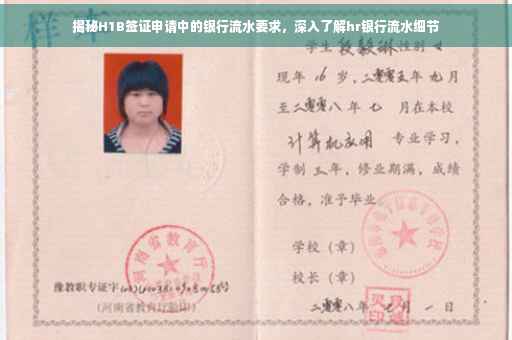 揭秘H1B签证申请中的银行流水要求，深入了解hr银行流水细节
样本
学生段毅琳性别女
现年16岁，二零零五年九月
至二零零八年七月在本校
计算机应用 专业学习，
学制三年，修业期满，成绩
合格，准予毕业。
学校（章）
校长（章）
二零零八年 月一日
河南省教育厅
豫教职专证字
（河南省教育厅验印）